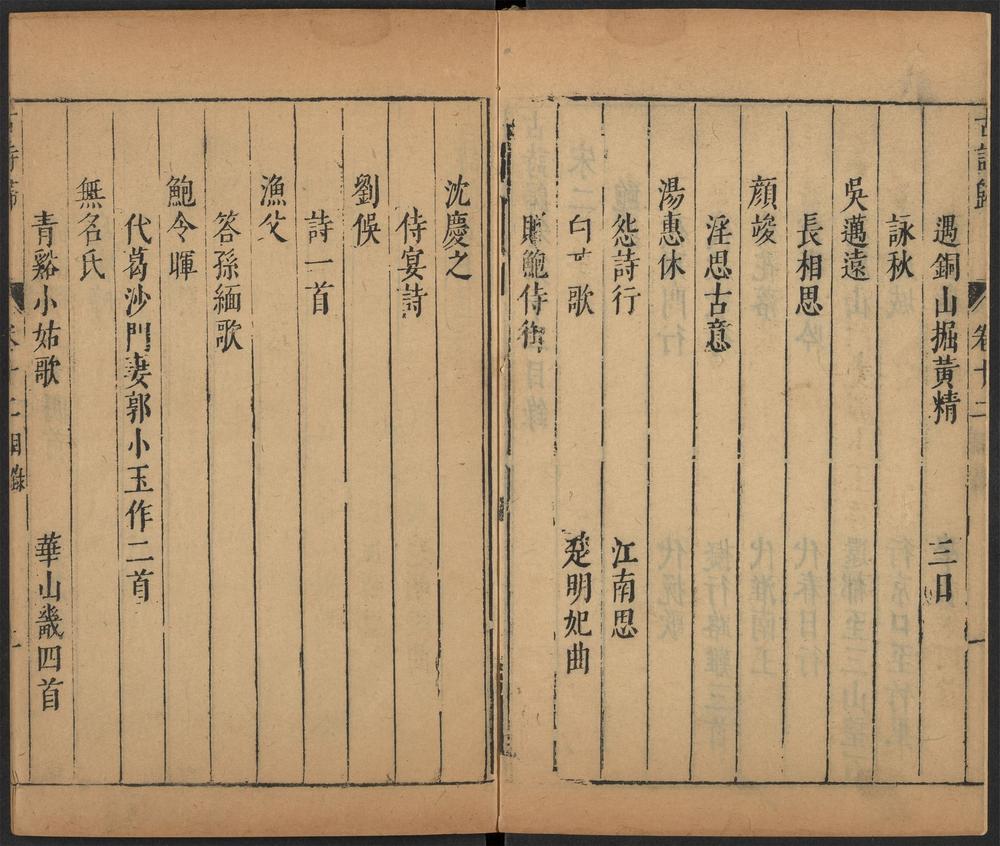 古詩歸 卷十二 一
遇銅山掘黃精 三日
詠秋
吳邁遠
長相思
顏竣
淫思古意
湯惠休
怨詩行 江南思
白 歌 楚明妃曲
贈鮑侍御
沈慶之
侍宴詩
劉俁
詩一首
漁父
答孫緬歌
鮑令暉
代葛沙門妻郭小玉作二首
無名氏
青谿小姑歌 華山畿四首
卷十二目錄 二